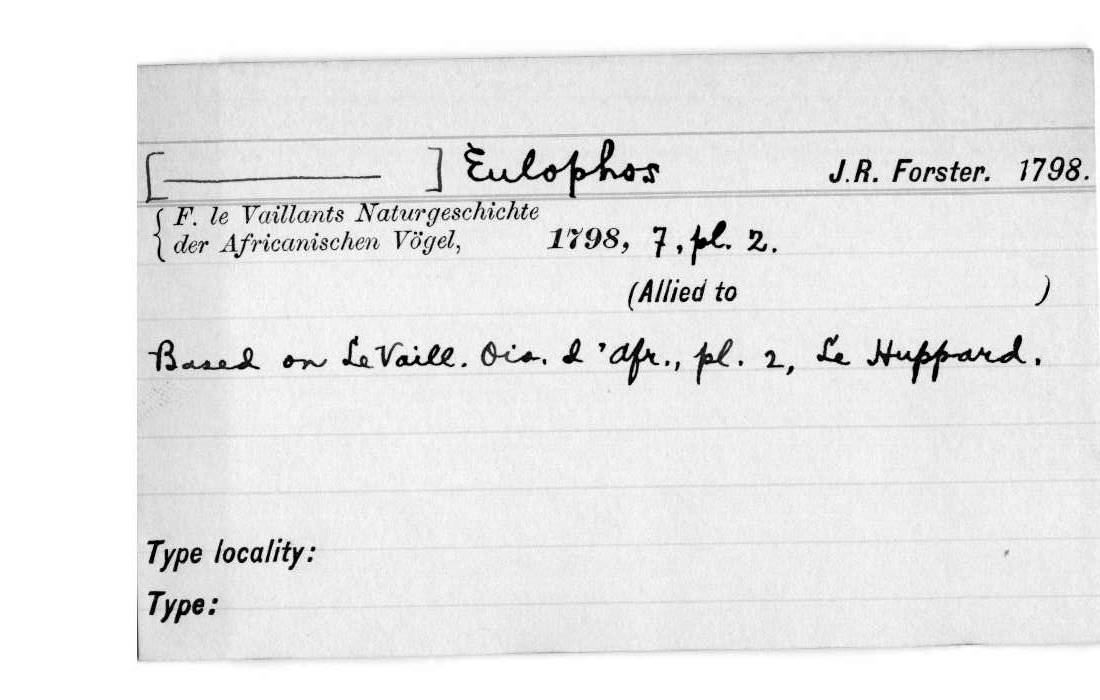 [ ——— ] Eulophos J.R. Forster. 1798.
F. le Vaillants Naturgeschichte
der Africanischen Vögel, 1798, 7, pl. 2.
(Allied to )
Based on Le Vaill. Ois. d'Afr., pl. 2, Le Huppard.
Type locality:
Type: